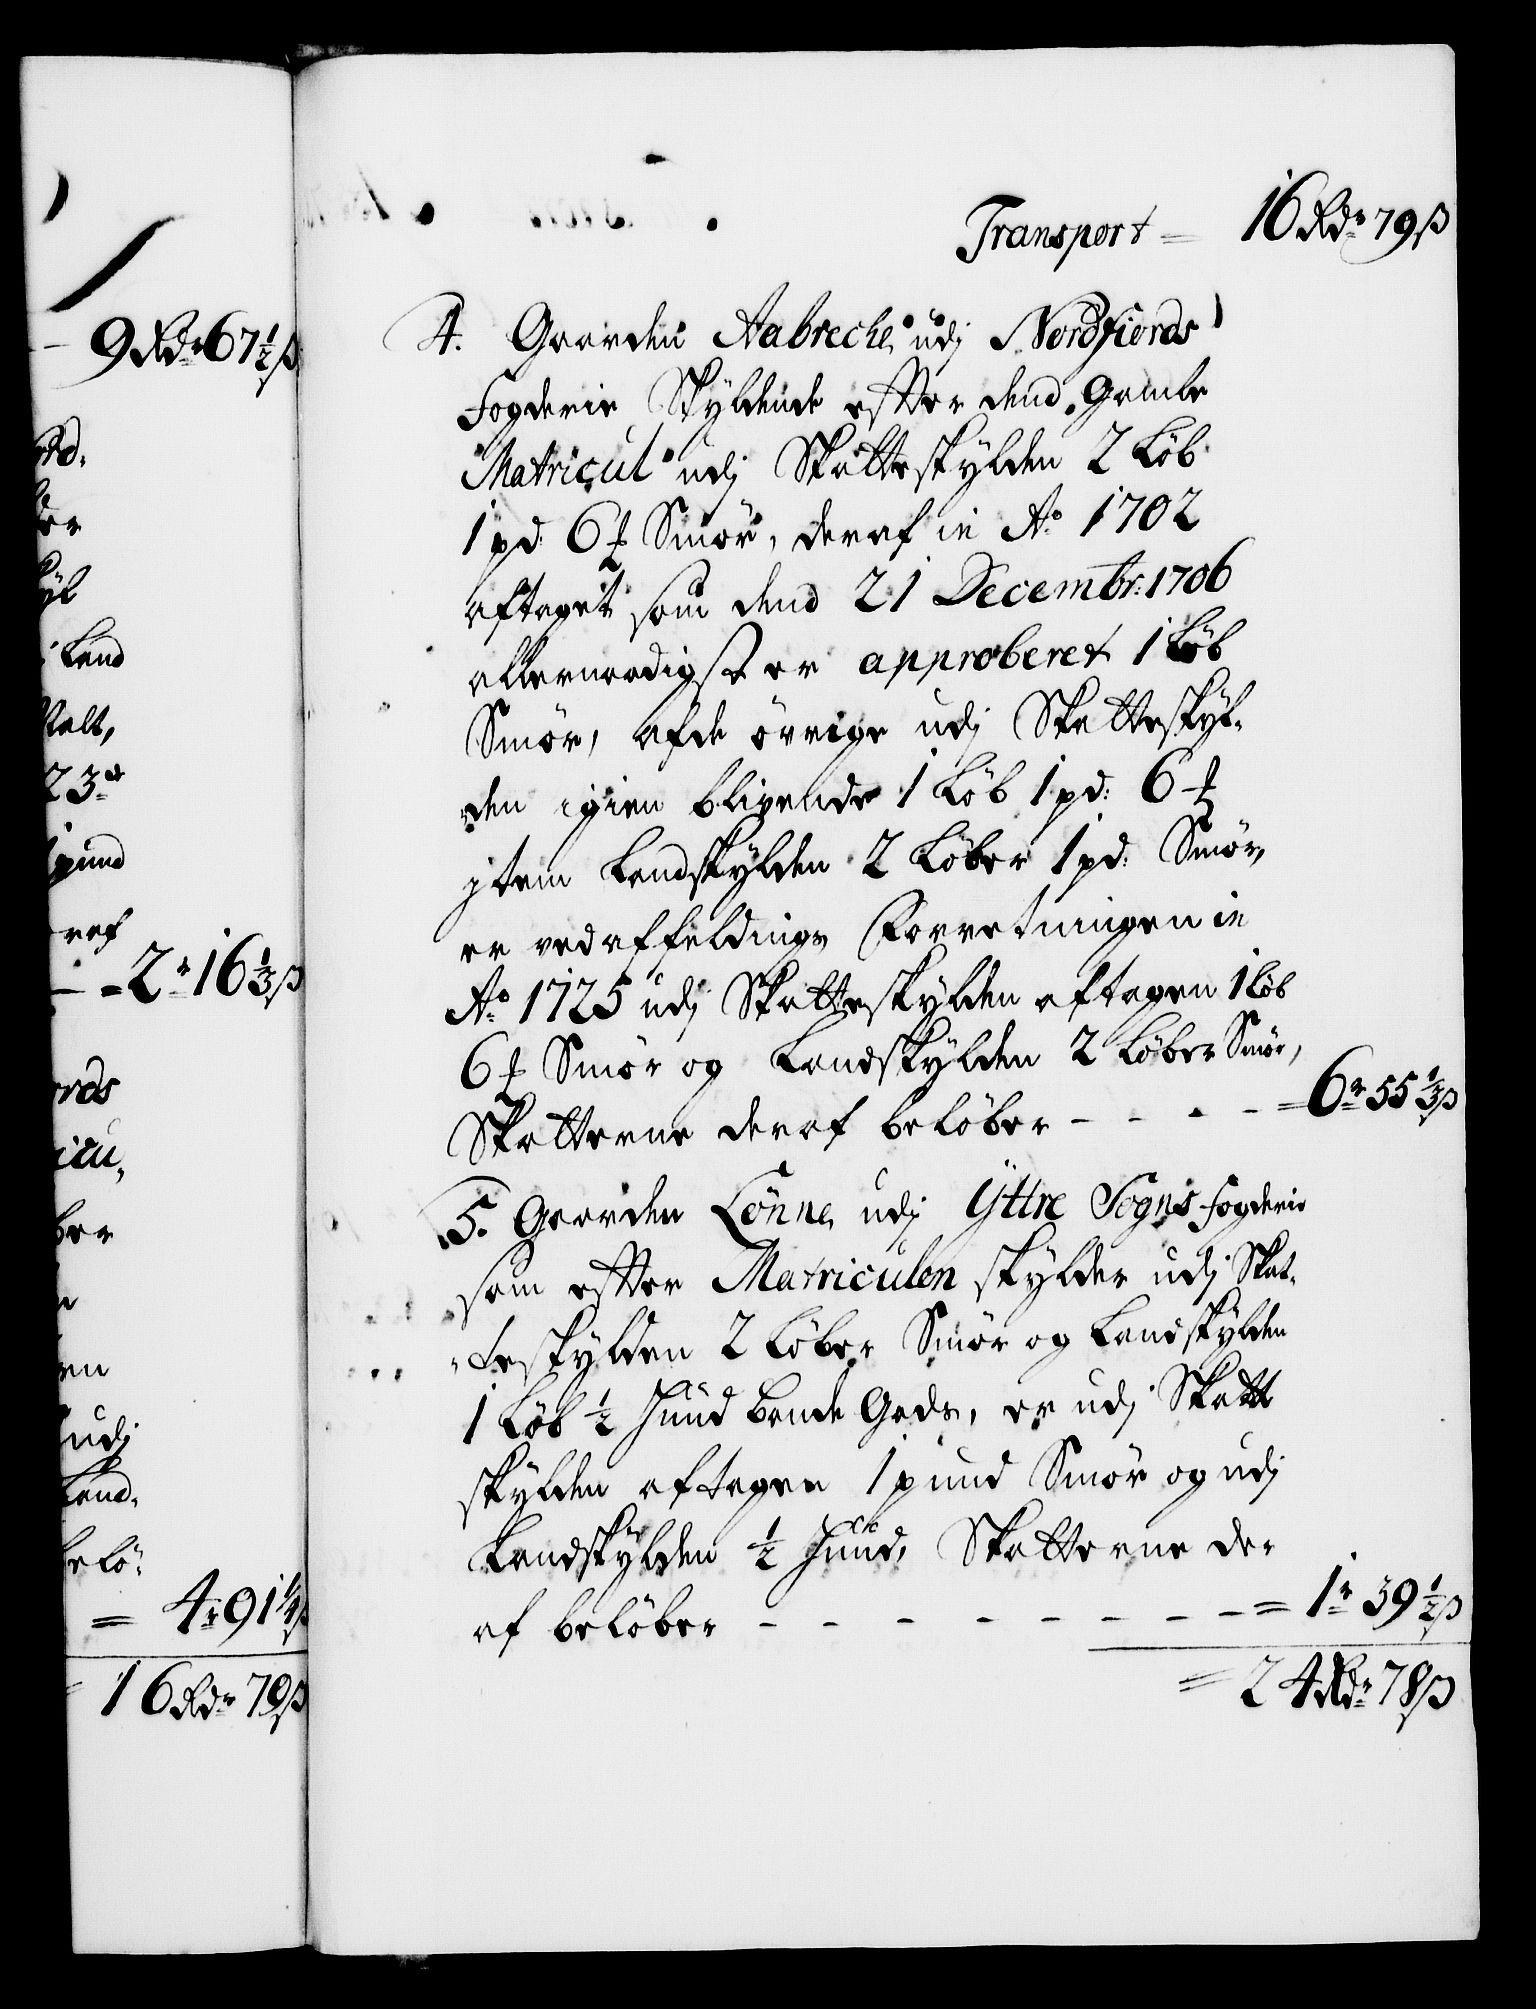 9 Rdr 67½ ß
rd.
ber
kyl
Land
talt,
23de
1 pund
eraf
2r 16⅓ ß
ords
icu,
ber
en
udj
Land,
belö,
= 4r 91¼ ß
= 16 Rdr 79 ß
Transport = 16 Rdr 79 ß
4. Gaarden Aabreche udj Nordfiords
Fogderie Skyldende effter dend Gamle
Matricul udj Skatteskylden 2 Löb
1 pd: 6 ℔ Smör, deraf in Ao 1702
aftaget som dend 21 Decembr: 1706
allernaadigst er approberet 1 Löb
Smör, af de övrige udj Skatteskyl-
den igien blivende 1 Löb 1 pd: 6 ℔
jtem Landskylden 2 Löber 1 pd: Smör,
er ved affeldings Forretningen in
Ao 1725 udj Skatteskylden aftagen 1 Löb
6 ℔ Smör og Landskylden 2 Löber Smör,
Skatterne deraf belöber - - - - = 6r 55⅓ ß
5. Gaarden Lönne udj Yttre Sogns fogderie
som effter Matriculen skylder udj Skat-
-teskylden 2 Löber Smör og Landskylden
1 Löb ½ Huud bonde Gods, er udj Skatt
skylden aftagen 1 pund Smör og udj
Landskylden ½ Huud, Skatterne der
af belöber - - - - - - - = 1r 39½ ß
= 24 Rdr 78 ß